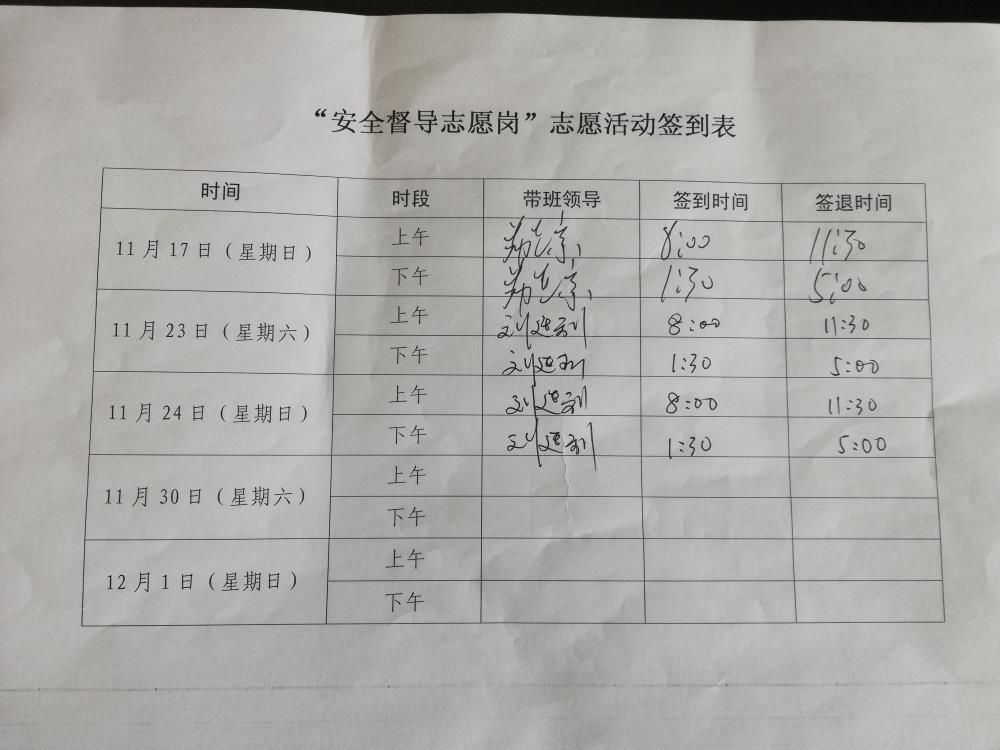 “安全督导志愿岗”志愿活动签到表
时间 时段 带班领导 签到时间 签退时间
11月17日（星期日） 上午 8:00 11:30
下午 1:30 5:00
11月23日（星期六） 上午 8:00 11:30
下午 1:30 5:00
11月24日（星期日） 上午 8:00 11:30
下午 1:30 5:00
11月30日（星期六） 上午
下午
12月1日（星期日） 上午
下午